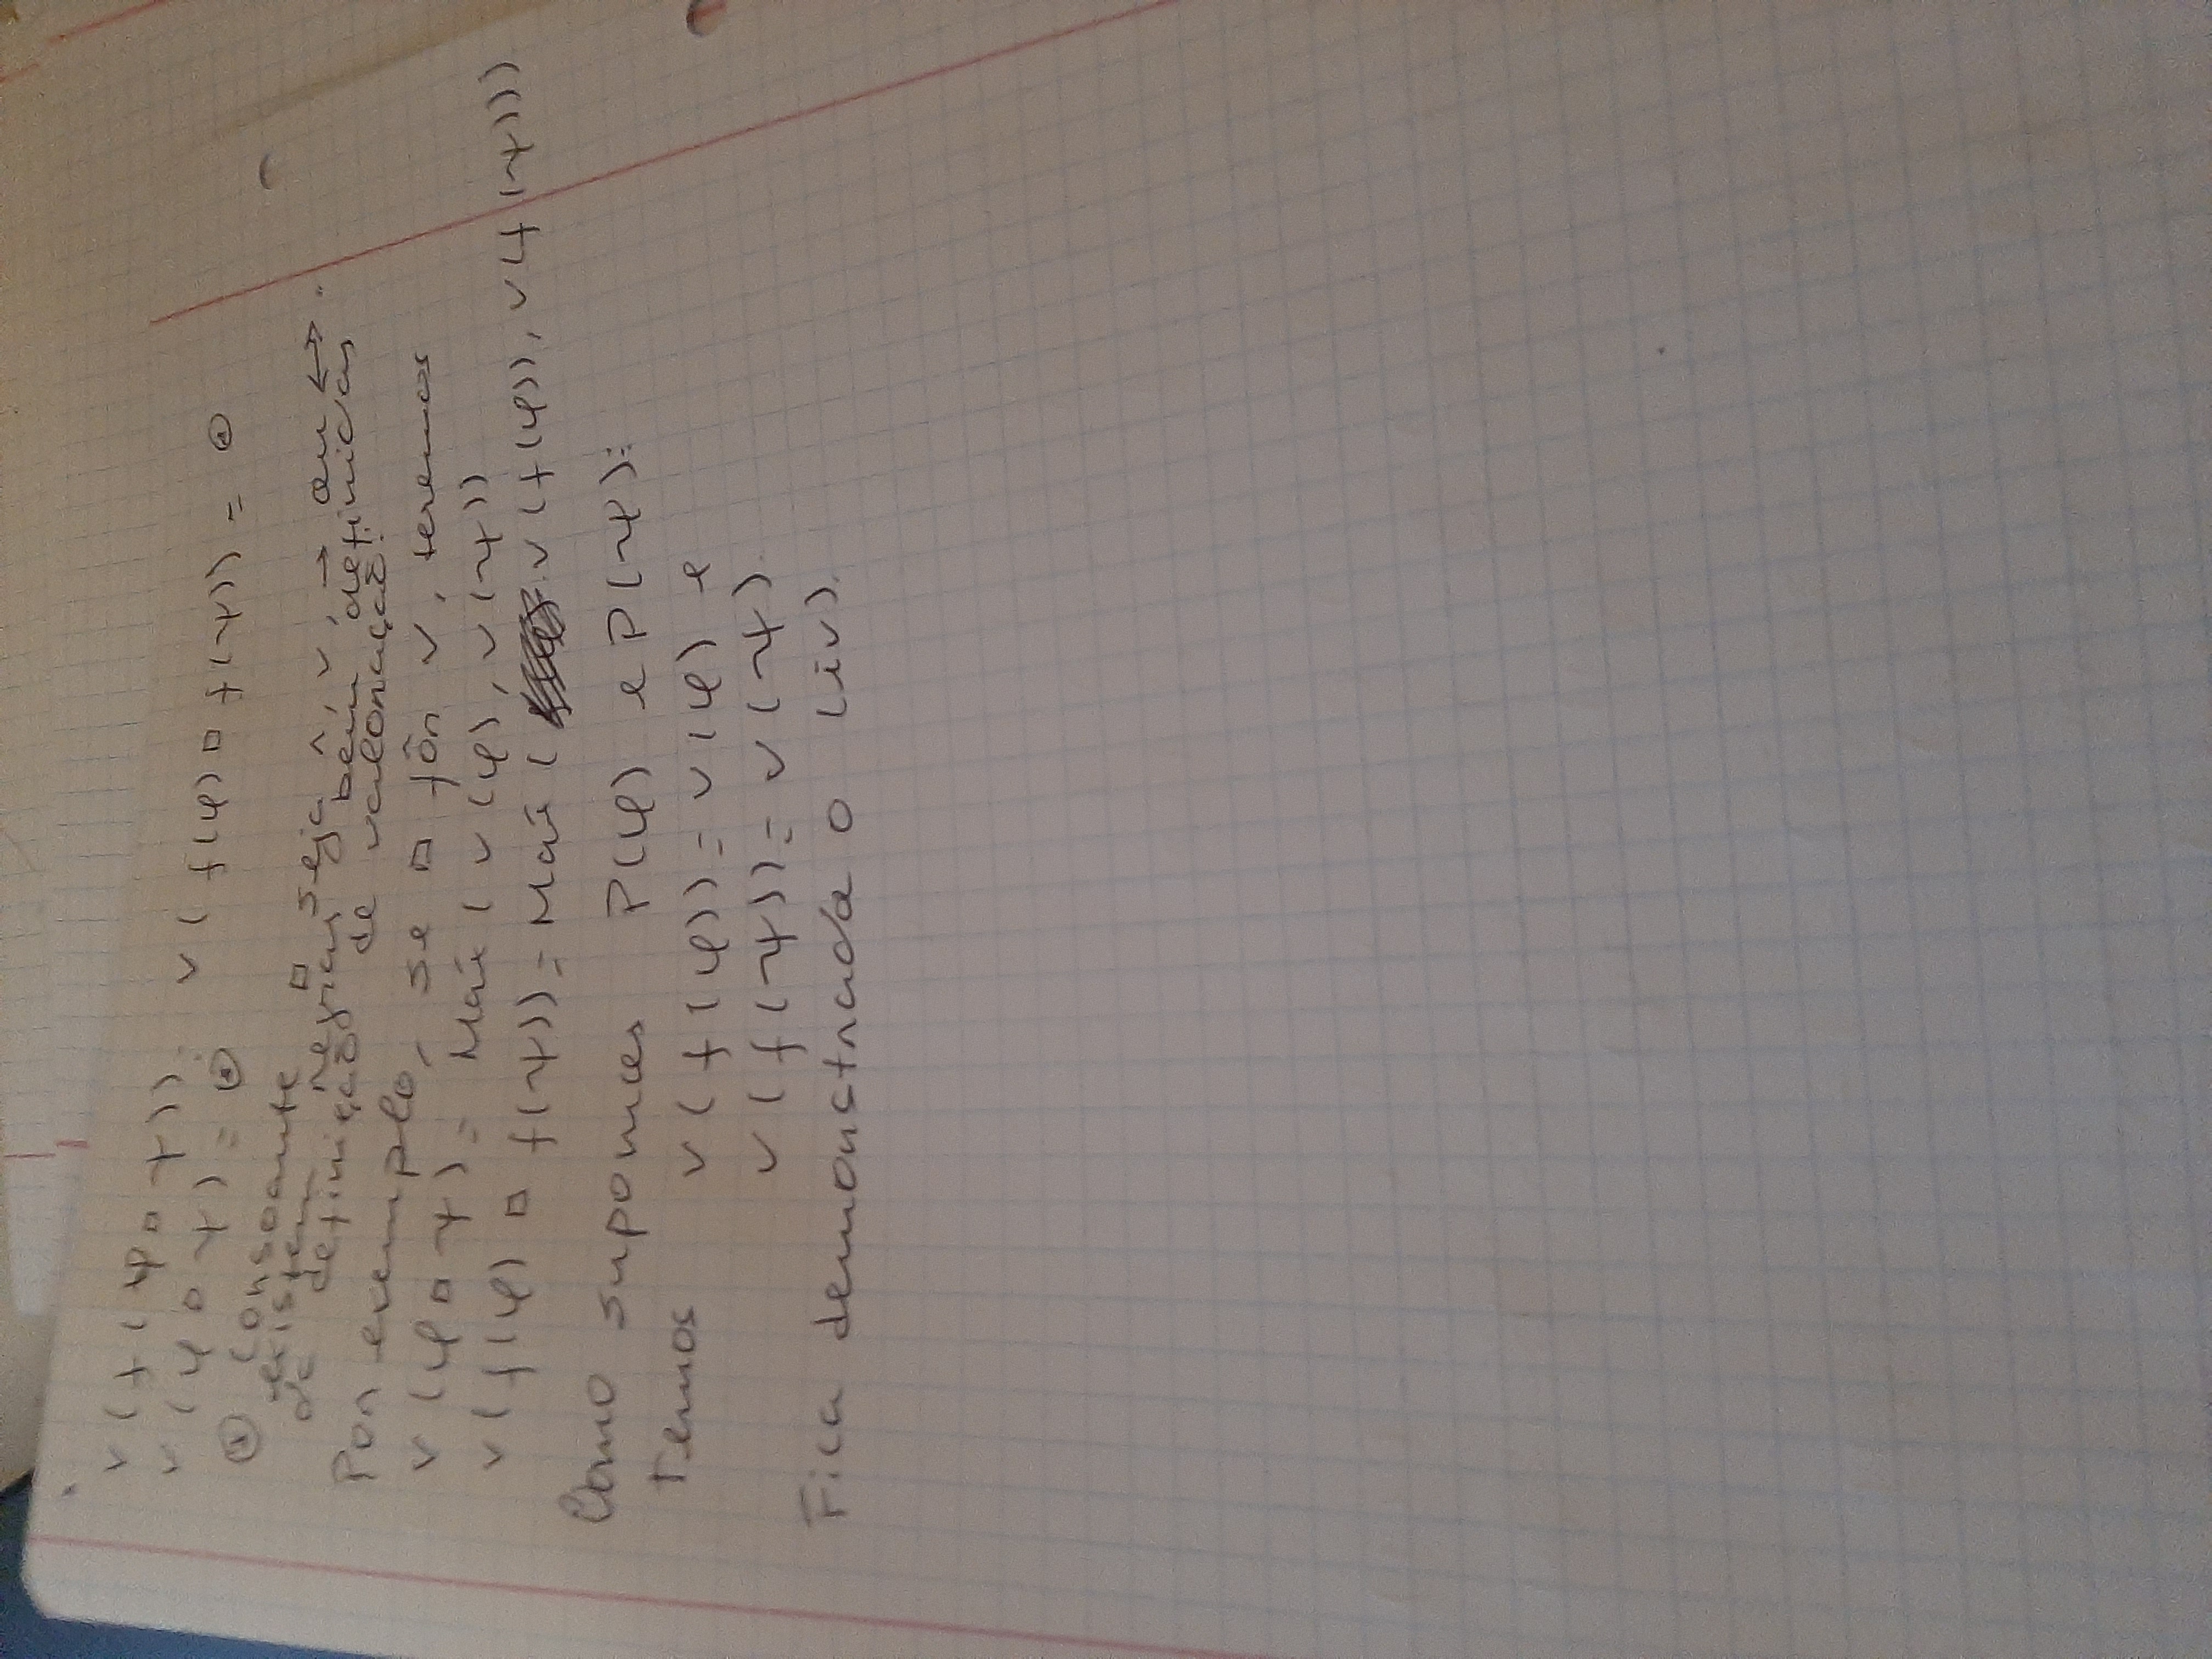 v(f(φ □ ψ)): v(f(φ) □ f(ψ)) = ⊙
v(φ □ ψ) = ⊙
⊙ Consoante □ seja ∧, ∨, → ou ↔.
existem regras bem definidas
da definição de valoração!
Por exemplo, se □ fôr ∨, teremos
v(φ □ ψ) = Máx(v(φ), v(ψ))
v(f(φ) □ f(ψ)) = Máx(v(f(φ)), v(f(ψ)))
Como supomos P(φ) e P(ψ):
Temos v(f(φ)) = v(φ) e
v(f(ψ)) = v(ψ).
Fica demonstrado o (iv).